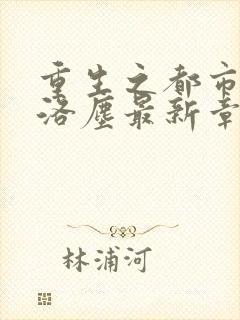 重生之都市
洛尘最新章
林浦河